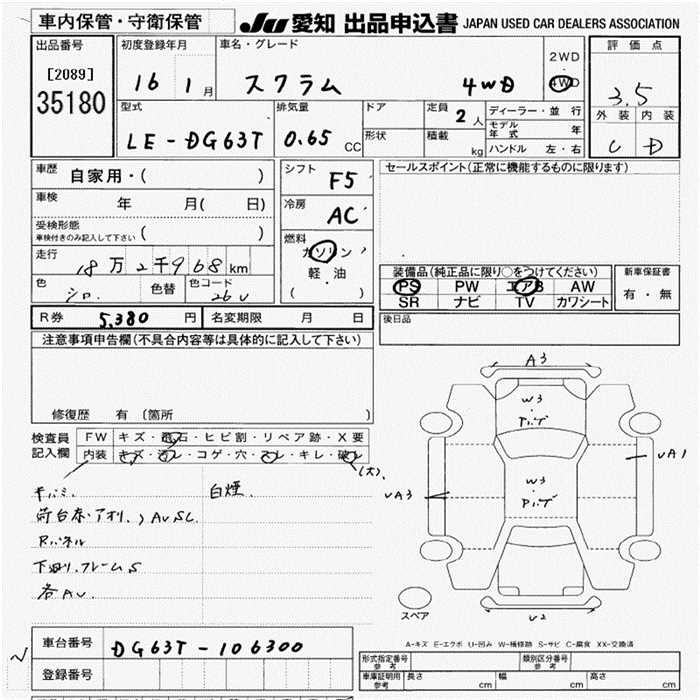 車内保管・守衛保管
JU 愛知 出品申込書 JAPAN USED CAR DEALERS ASSOCIATION
出品番号
[2089]
35180
初度登録年月
16 1月
車名・グレード
スクラム 4WD
2WD
・
4WD
評価点
3.5
外装 内装
C D
型式
LE-DG63T
排気量
0.65 CC
ドア
形状
定員 2人
積載 kg
ディーラー・並行
モデル年式 年
ハンドル 左・右
車歴 自家用・( )
車検 年 月( 日)
受検形態
車検付きのみ記入して下さい ( )
走行
18万2千968km
色 シロ. 色替 色コード 26U
シフト F5
冷房 AC
燃料
ガソリン
軽・油
( )
セールスポイント(正常に機能するものに限ります)
装備品(純正品に限り○をつけてください)
PS PW エアB AW
SR ナビ TV カワシート
新車保証書
有・無
後日品
R券 5,380円 名変期限 月 日
注意事項申告欄(不具合内容等は具体的に記入して下さい)
修復歴 有 〔箇所 〕
検査員
記入欄
FW キズ・飛石・ヒビ割・リペア跡・X要
内装 キズ・汚レ・コゲ・穴・スレ・キレ・破レ
(大).
白煙.
荷台床.アオリ. AU SC.
Rパネル
下廻り.フレームS
各AU.
A3
W3
・
Pハゲ
W3
・
Pハゲ
UA1
UA3
U2
スペア
A-キズ E-エクボ U-凹み W-補修跡 S-サビ C-腐食 XX-交換済
車台番号 DG63T-106300
登録番号
形式指定番号
参考
類別区分番号
参考
車庫証明用
参考
長さ cm 幅 cm 高さ cm